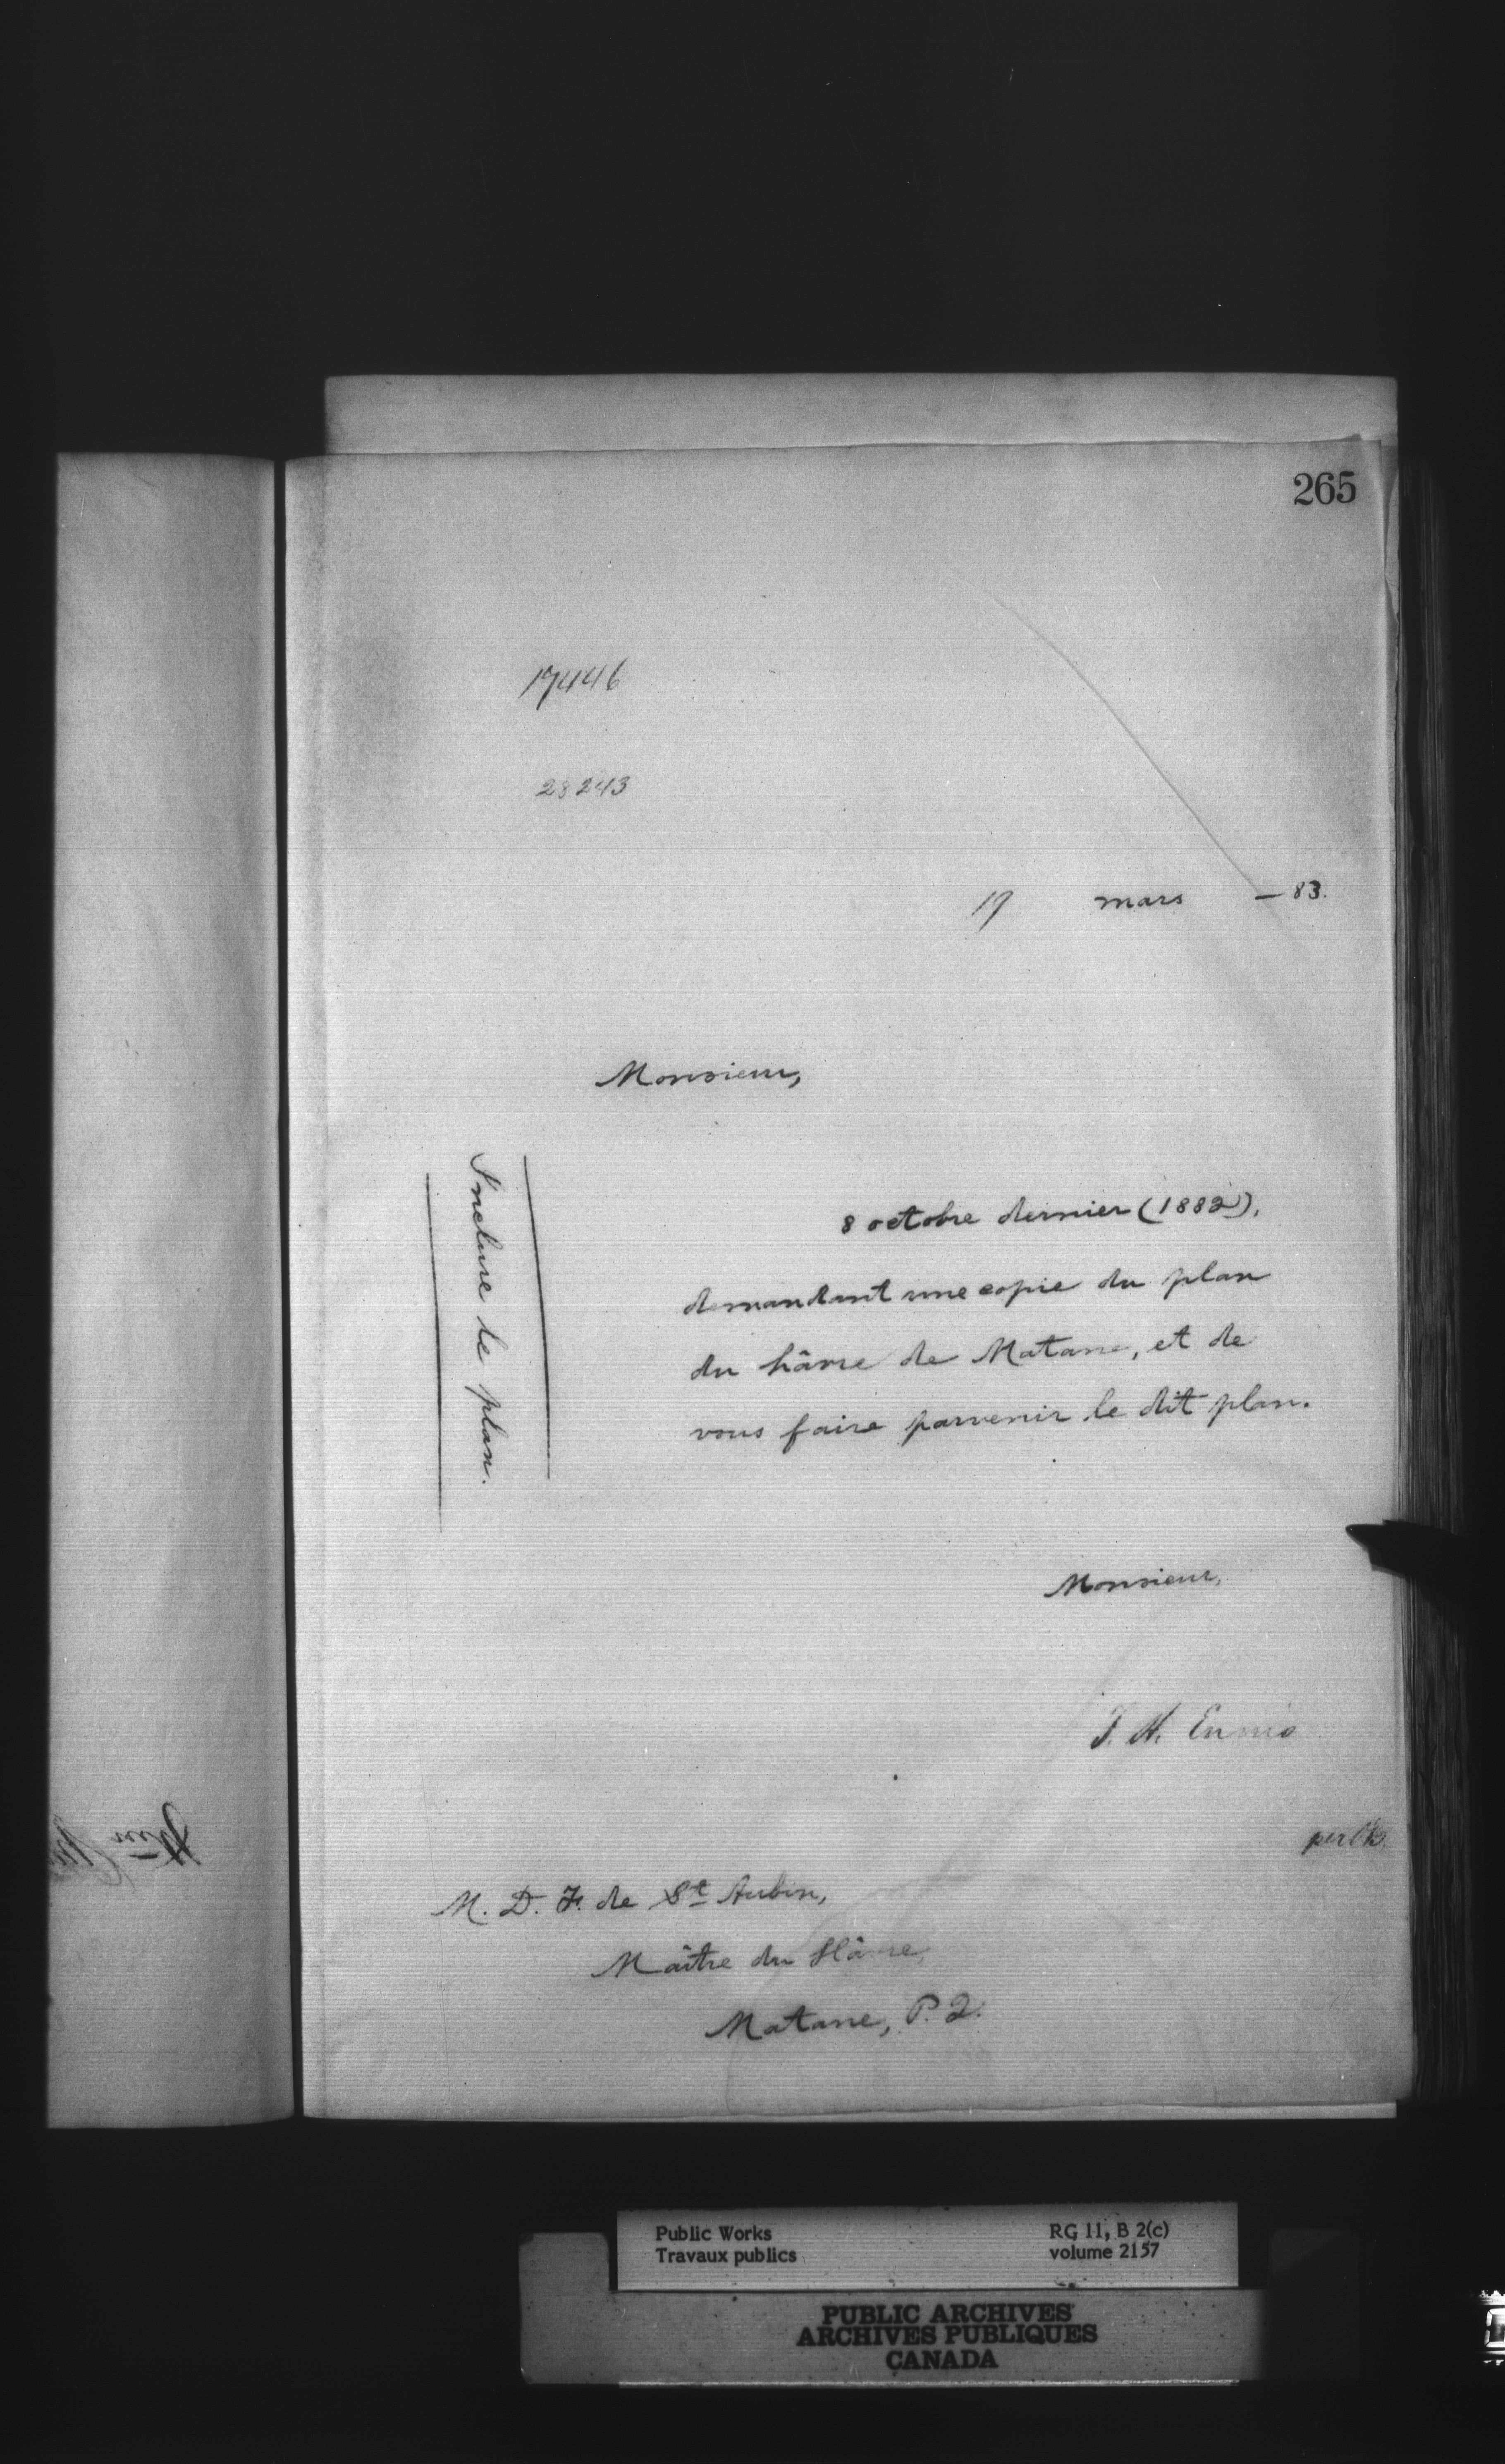 265
17446
28243
19 mars — 83.
Monsieur,
Inclure le plan.
8 octobre dernier (1882),
demandant une copie du plan
du hâvre de Matane, et de
vous faire parvenir le dit plan.
Monsieur,
F. H. Ennis
per
M. D. F. de St Aubin,
Maître du Hâvre,
Matane, P. Q.
Public Works
Travaux publics
RG 11, B 2(c)
volume 2157
PUBLIC ARCHIVES
ARCHIVES PUBLIQUES
CANADA